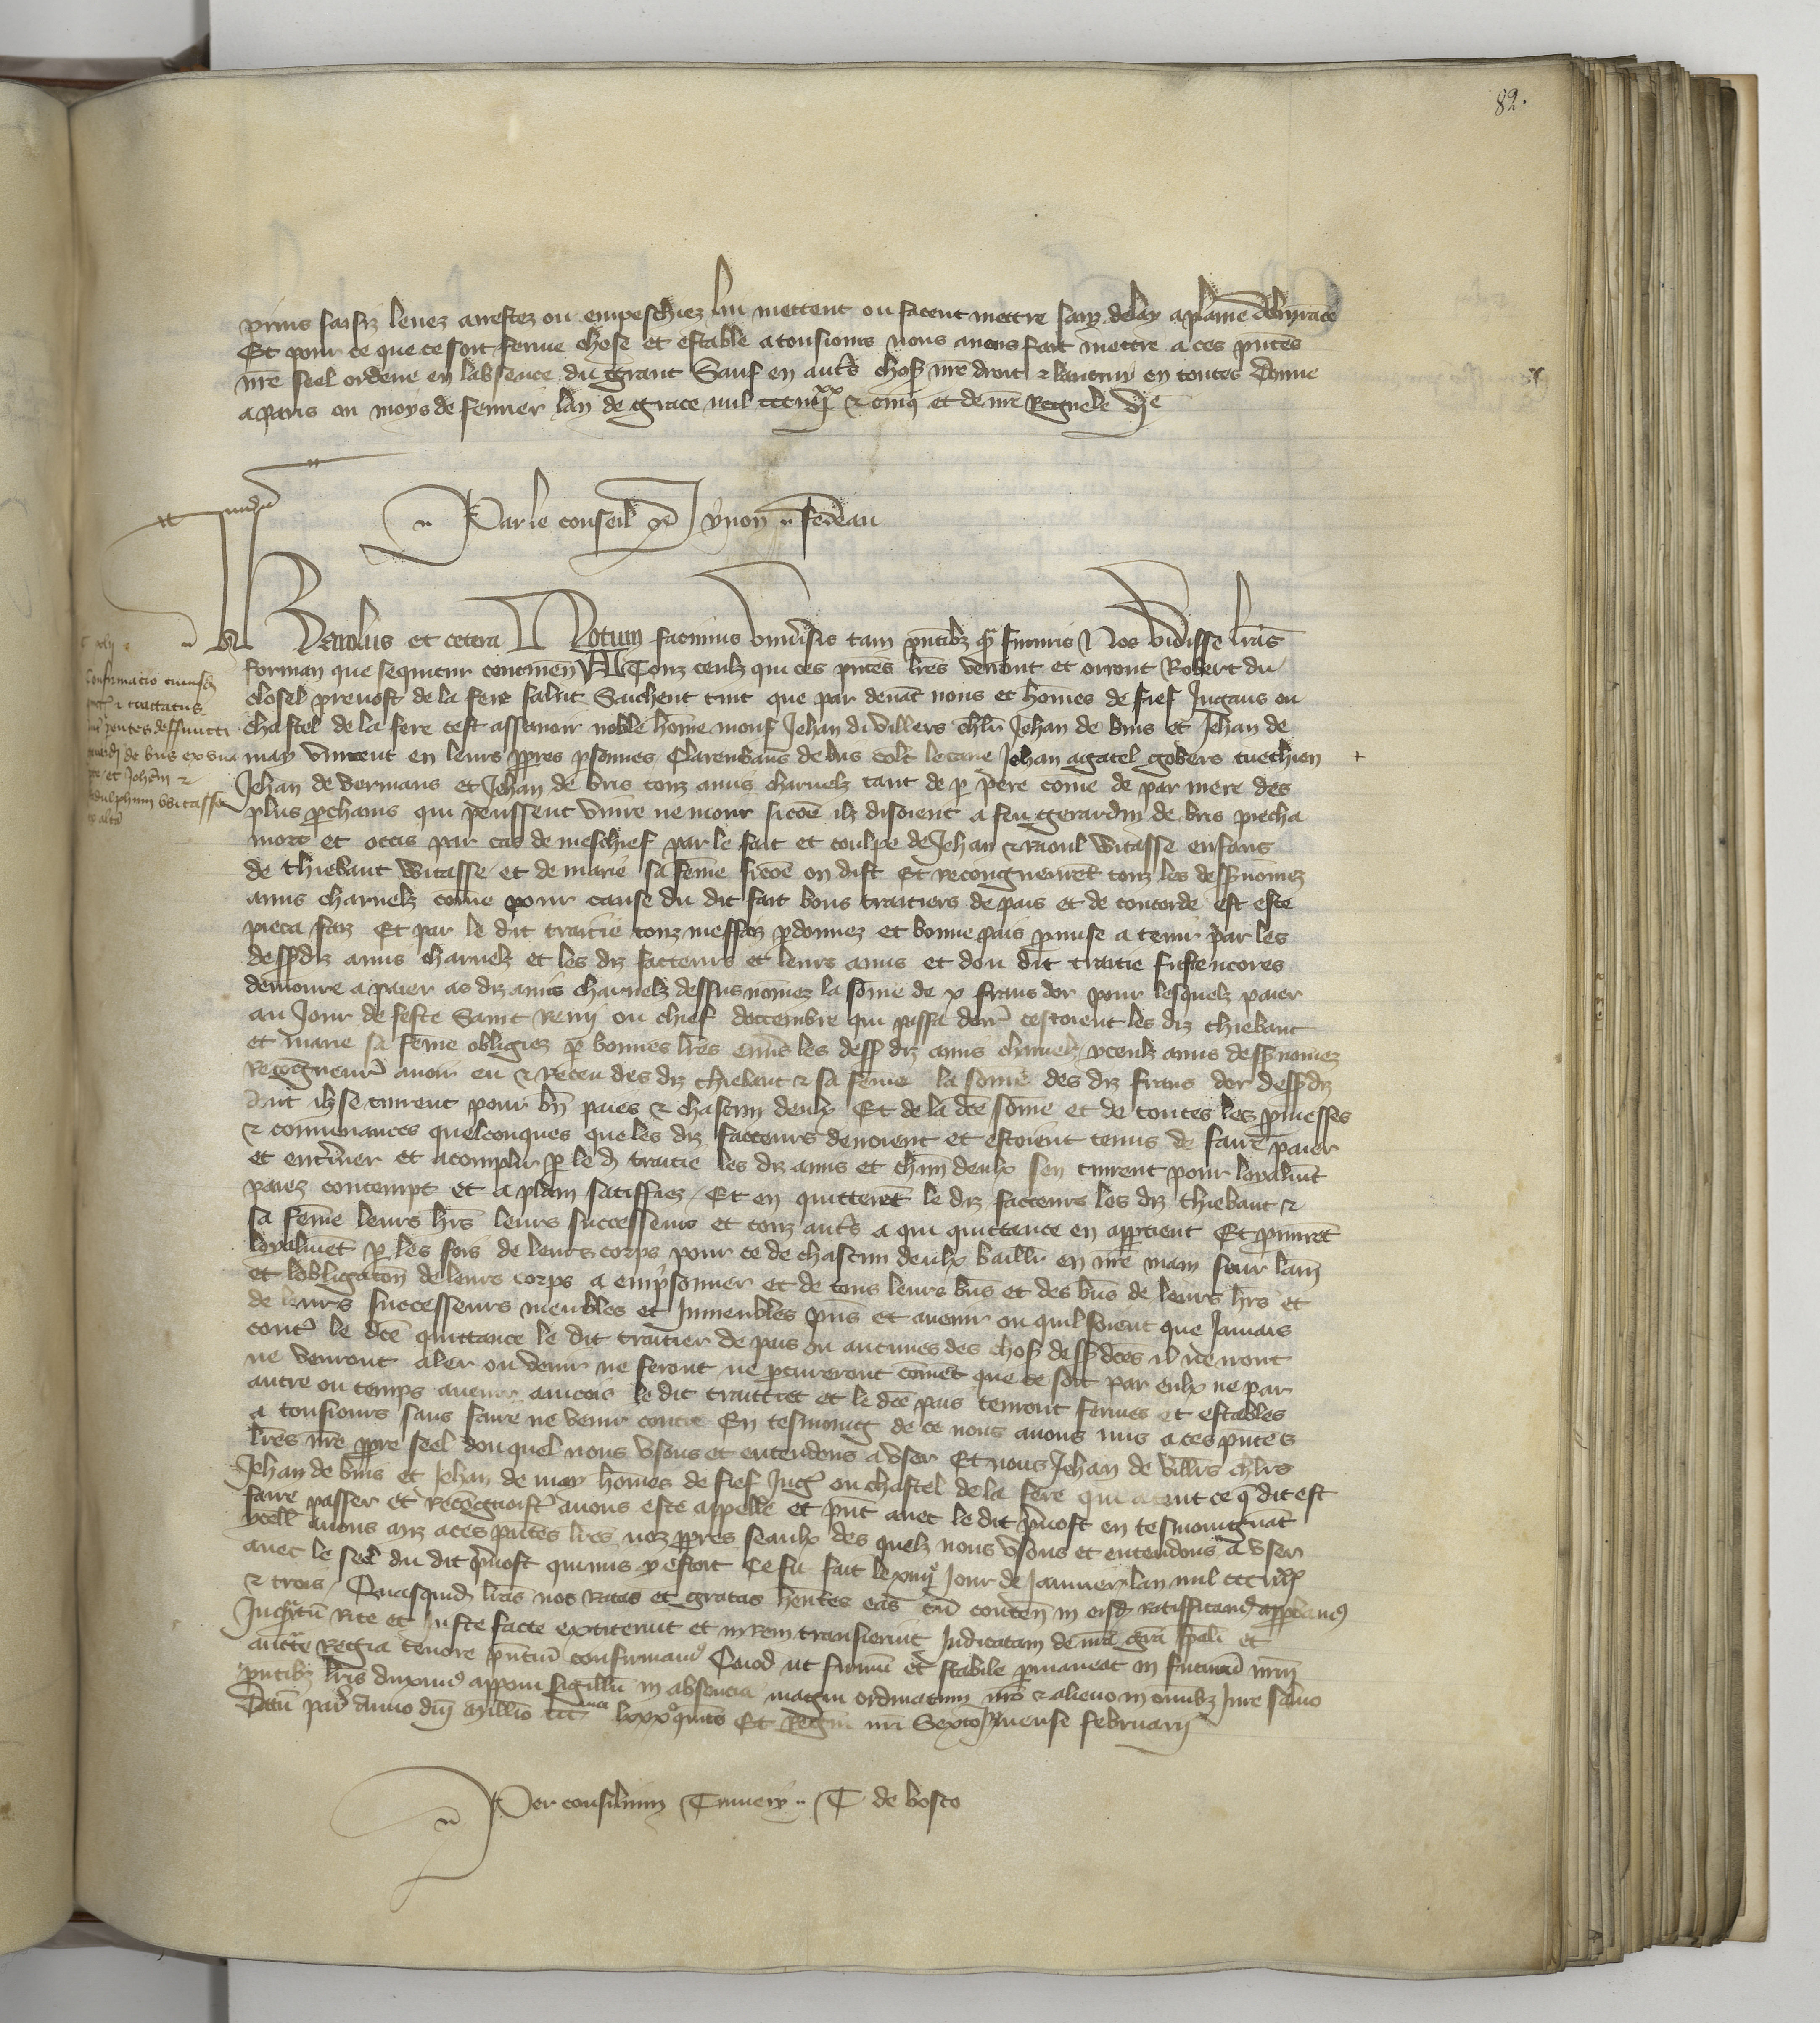 82.
prins saisiz levez arrestez ou empeschiez lui mettent ou facent mettre sanz delay a plaine delivrance
Et pour ce que ce soit ferme chose et estable a tousiours nous avons fait mettre a ces pntes
nre seel ordene en labsence du grant Sauf en autres choses nre droit & lautruy en toutes Donne
a Paris ou moys de fevrier lan de grace mil ccc iiiixx & cinq et de nre Regne le vie
Par le conseil Yvon Fedeau
Karolus et cetera Notum facimus universis tam pntibz q futuris Nos vidisse lras
formam que sequitur continen A Touz ceulz qui ces pntes lres verront et orront Robert du
closel prevost de la fere salut Sachent tuit que par devat nous et homes de fief Jugans ou
chastel de la fere cest assavoir noble home mons Jehan di villers chlr Jehan de bris et Jehan de
may vinrent en leurs ppres psonnes Clarembaus de bris Jehan agatel gobers +
Jehan de vermans et Jehan de bris touz amis charnelz tant de p pere come de par mere des
plus pchains qui peussent vivre ne morir sicoe ilz disoient a feu gerardin de bris piecha
mort et occis par cas de meschief par le fait et coulpe de Jehan & Raoul Witasse enfans
de thiebaut Witasse et de marie sa feme sicoe on dist Et recongneuret touz les dess nomez
amis charnelz come pour cause du dit fait bons traitiers de pais et de concorde est este
pieca faiz Et par le dit traitie touz meffaiz pdonnez et bonne pais pmise a tenir par les
dess diz amis charnelz et les diz facteurs et leurs amis et dou dit traitie fust encores
demoure a paier as diz amis charnelz dessus nomez la some de x frans dor pour lesquelz paier
au Jour de feste Saint Remy ou chief doctembre qui passa der cestoient les diz thiebaut
et marie sa feme obligiez p bonnes lres envs les dess diz amis charnelz yceulz amis dess nomez
Recogneur avoir eu & Receu des diz thiebaut & sa feme la some des diz frans dor dess diz
dont ilz se tinrent pour bn paies & chascun deulx Et de la dce some et de toutes les pmesses
& convenances quelconques que les diz facteurs devoient et estoient tenus de faire paier
et enteriner et acomplir p le d traitie les diz amis et chun deulx sen tinrent pour loyalmt
paiez contempt et a plain satiffiez Et en quitteret le diz facteurs les diz thiebaut &
sa feme leurs hrs leurs successeurs et touz autres a qui quittance en apptient Et pmiret
loyalmet p les fois de leurs corps pour ce de chascun deulx baillie en nre main sour lam
et lobligacon de leurs corps a emprisonner et de tous leurs bns et des bns de leurs hrs et
de leurs successeurs meubles et Inmeubles pns et avenir ou quil soient que Jamais
contre le dce quittance le dit traitier de pais ou aucunes des choses dess dces il ne vont
ne venront aler ou venir ne feront ne pcureront comet que ce soit par eulx ne par
autre ou temps avenir aincois le dit traittiet et le dce pais tenront fermes et estables
a tousiours sans faire ne venir contre En tesmoing de ce nous avons mis a ces pntes
lres nre ppre seel douquel nous usons et entendons a user Et nous Jehan de villrs chlrs
Jehan de bris et Jehan de may homes de fief Jug ou chastel de la fere qui a tout ce q dit est
faire passer et recognoistre avons este appelle et pnt avec le dit pvost en tesmoingnat
ycell avons mis a ces pntes lres noz ppres seaulx des quelz nous usons et entendons a user
avec le seel du dit pvost qui mis y estoit Ce fu fait le xiiiie Jour de Janvier lan mil ccc iiiixx
& trois Quasquid lras nos Ratas et gratas hentes eas ou conten in eisd ratifficand approbamus
Inquatu rite et iuste facte extiterunt et in rem transierunt Judicatam de nra gra spali et
auctte Regia tenore pntiu confirmamus Quod ut firmu et stabile pmaneat in futuru nrm
pntibz lris duximus apponi sigillu in absencia magni ordinatum nro & alieno in omibz Jure salvo
Datu par anno dni Millio ccc lxxx quinto Et Regni nri Sexto mense februarij
Per consilium T de bosco
Confirmacio cuiusd
tractatus